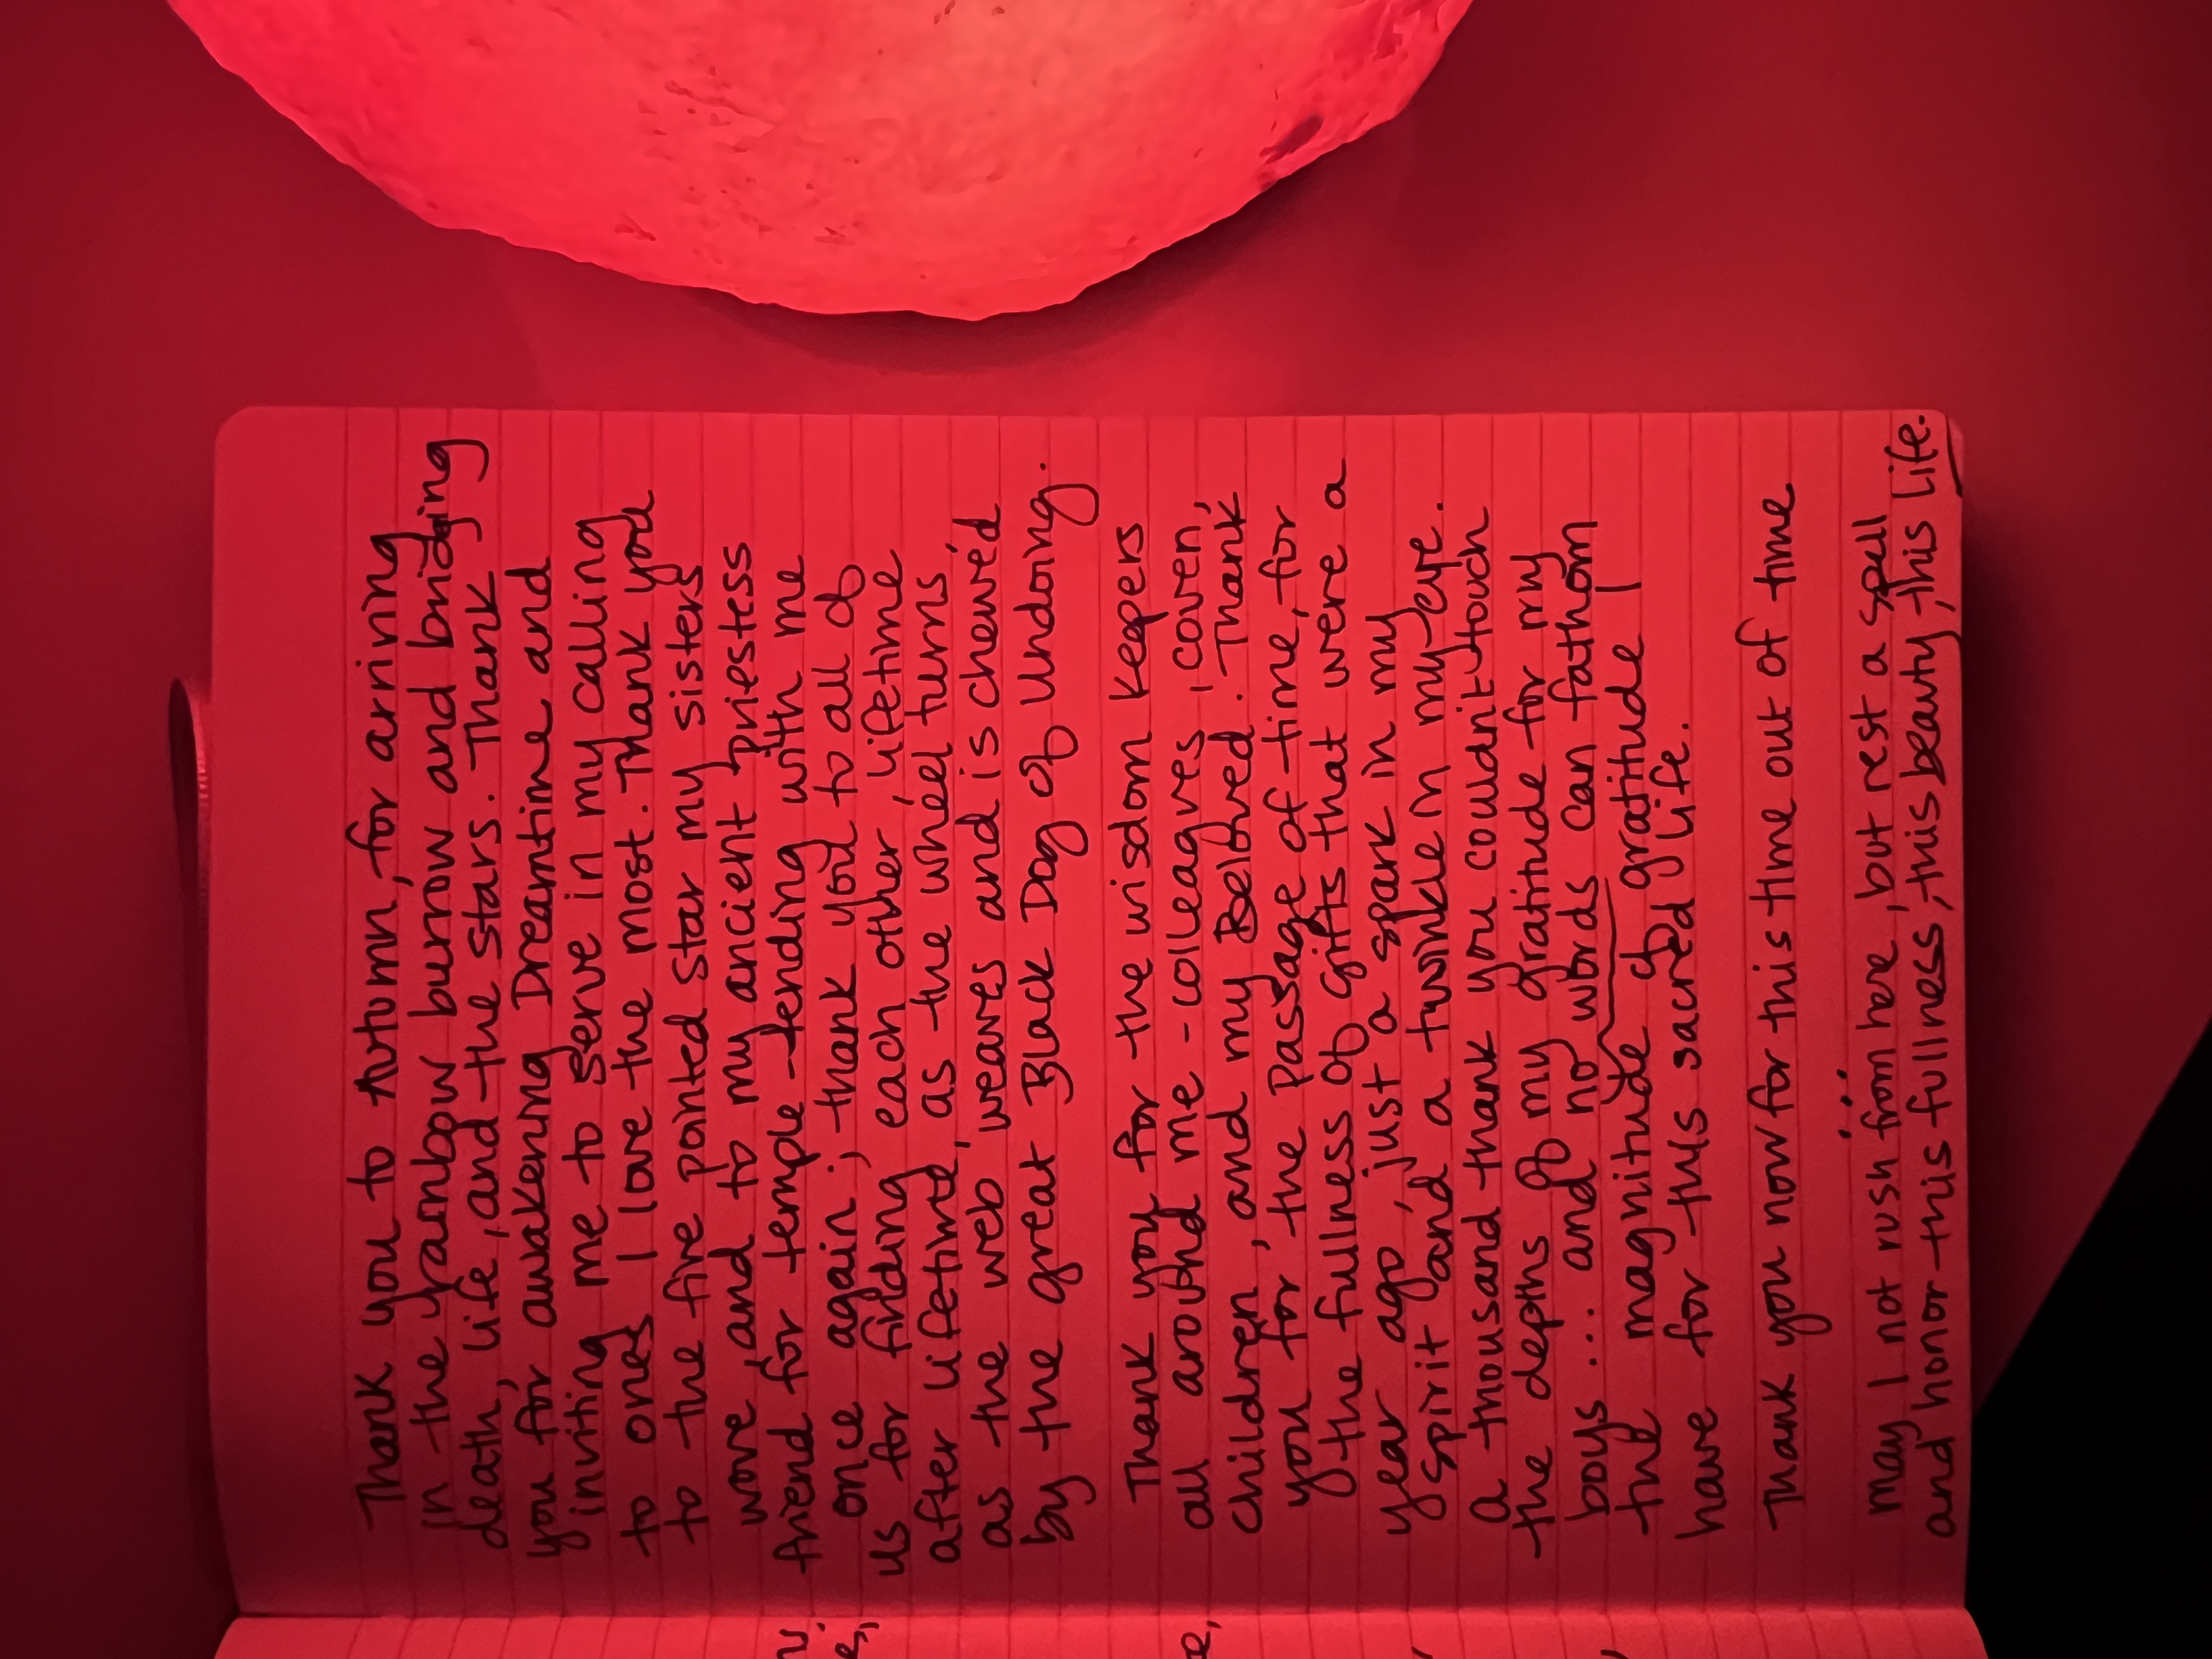 Thank you to Autumn, for arriving
in the rainbow burrow and bridging
death, life, and the stars. Thank
you for awakening Dreamtime and
inviting me to serve in my calling
to ones I love the most. Thank you
to the five pointed star my sisters
wove, and to my ancient priestess
friend for temple-tending with me
once again; thank you to all of
us for finding each other, lifetime
after lifetime, as the wheel turns
as the web weaves and is chewed
by the great Black Dog of Undoing.
Thank you for the wisdom keepers
all around me - colleagues, coven,
children, and my Beloved. Thank
you for, the passage of time, for
the fullness of gifts that were a
year ago, just a spark in my
spirit and a twinkle in my eye.
a thousand thank you couldn't touch
the depths of my gratitude for my
boys ... and no words can fathom
the magnitude of gratitude I
have for this sacred life.
Thank you now for this time out of time
...
may I not rush from here, but rest a spell
and honor this fullness, this beauty, this life.